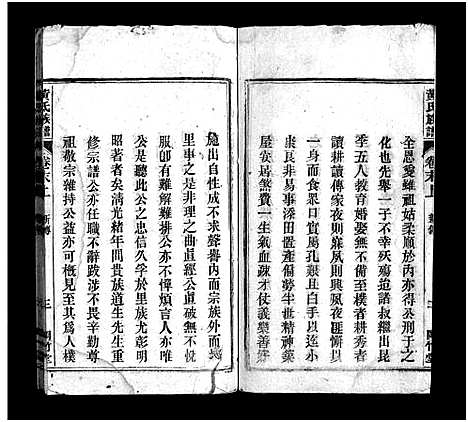 黃氏族譜
卷末上
全恩愛雖祖姑柔順於內亦得公刑于之
化也先舉一子不幸殀殤逭諸叔繼出昆
季五人教育婚娶無一虧缺嘗期耕者秀
讀耕讀傳家夜則寐夙則興夙夜匪懈以
一身而食課口實屬孔艱且白手以興小
康良非易易添田置產備勞半世精神築
屋安居煞費一生氣血疎才仗義樂善好
施出自性成不求聲譽內而宗族外而
里事之是非理之曲直經公直破無不悅
服卽有難解難排公亦不憚煩言人亦唯
公是聽此公之忠信久孚於里族尤彰明
昭著者矣清光緒年間貴族道生先生重
修宗譜公亦任職不辭跋涉不辭辛勤尊
祖敬宗維持公益亦可概見至其爲人樸
黃氏族譜
卷末上
新傳
三